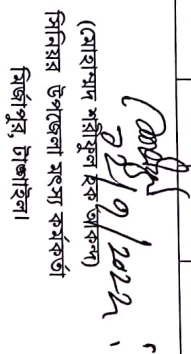 (মোহাম্মদ শরীফুল হক আকন্দ)
সিনিয়র উপজেলা মৎস্য কর্মকর্তা
মির্জাপুর, টাঙ্গাইল।